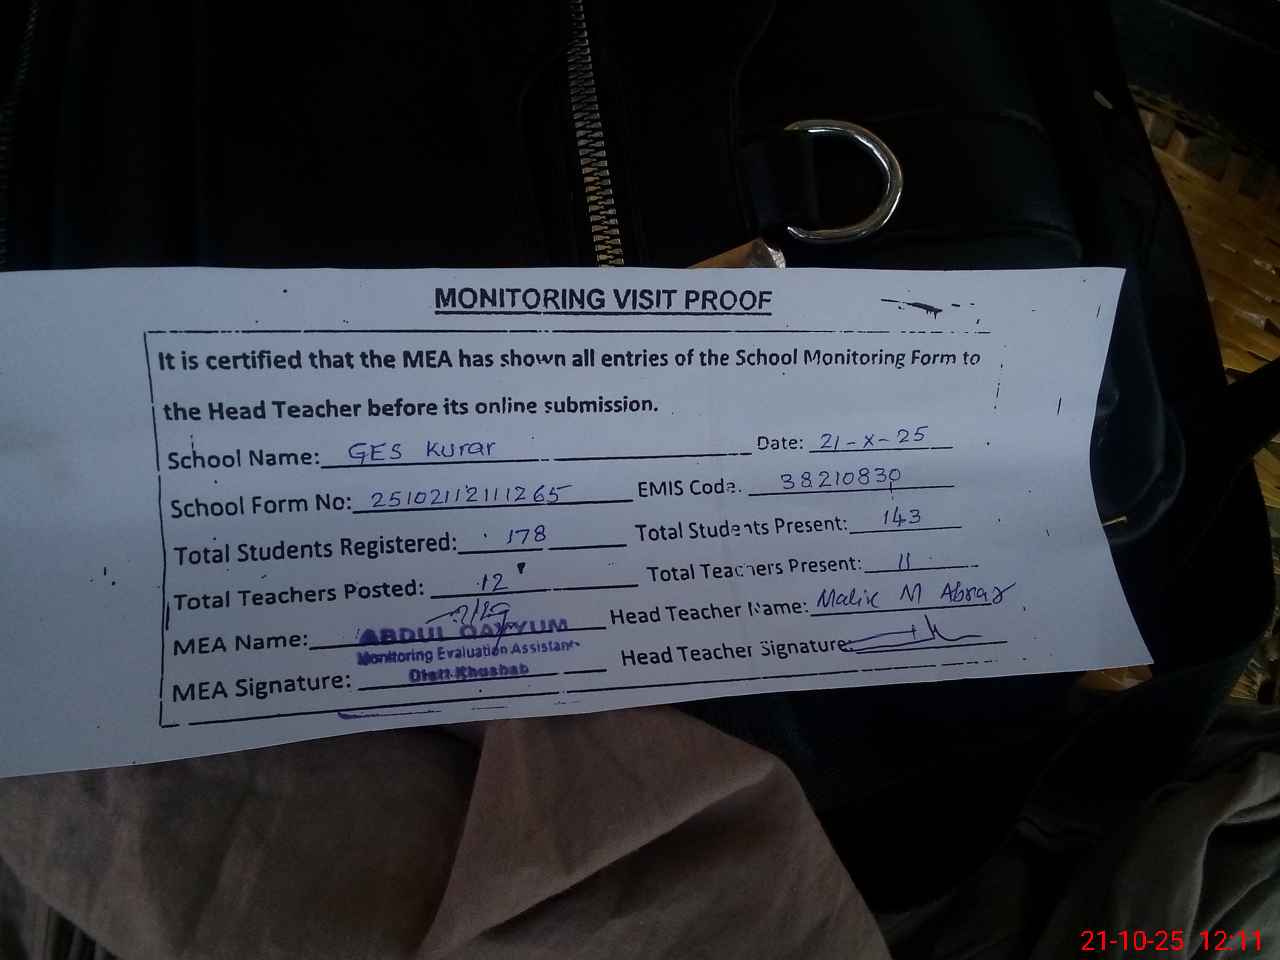 MONITORING VISIT PROOF
It is certified that the MEA has shown all entries of the School Monitoring Form to
the Head Teacher before its online submission.
School Name: GES Kurar Date: 21-X-25
School Form No: 251021121111265 EMIS Code. 38210830
Total Students Registered: 178 Total Students Present: 143
Total Teachers Posted: 12 Total Teachers Present: 11
MEA Name: ABDUL QAYYUM Head Teacher Name: Malik M Abraz
Monitoring Evaluation Assistant
MEA Signature: Distt. Khushab Head Teacher Signature:
21-10-25 12:11